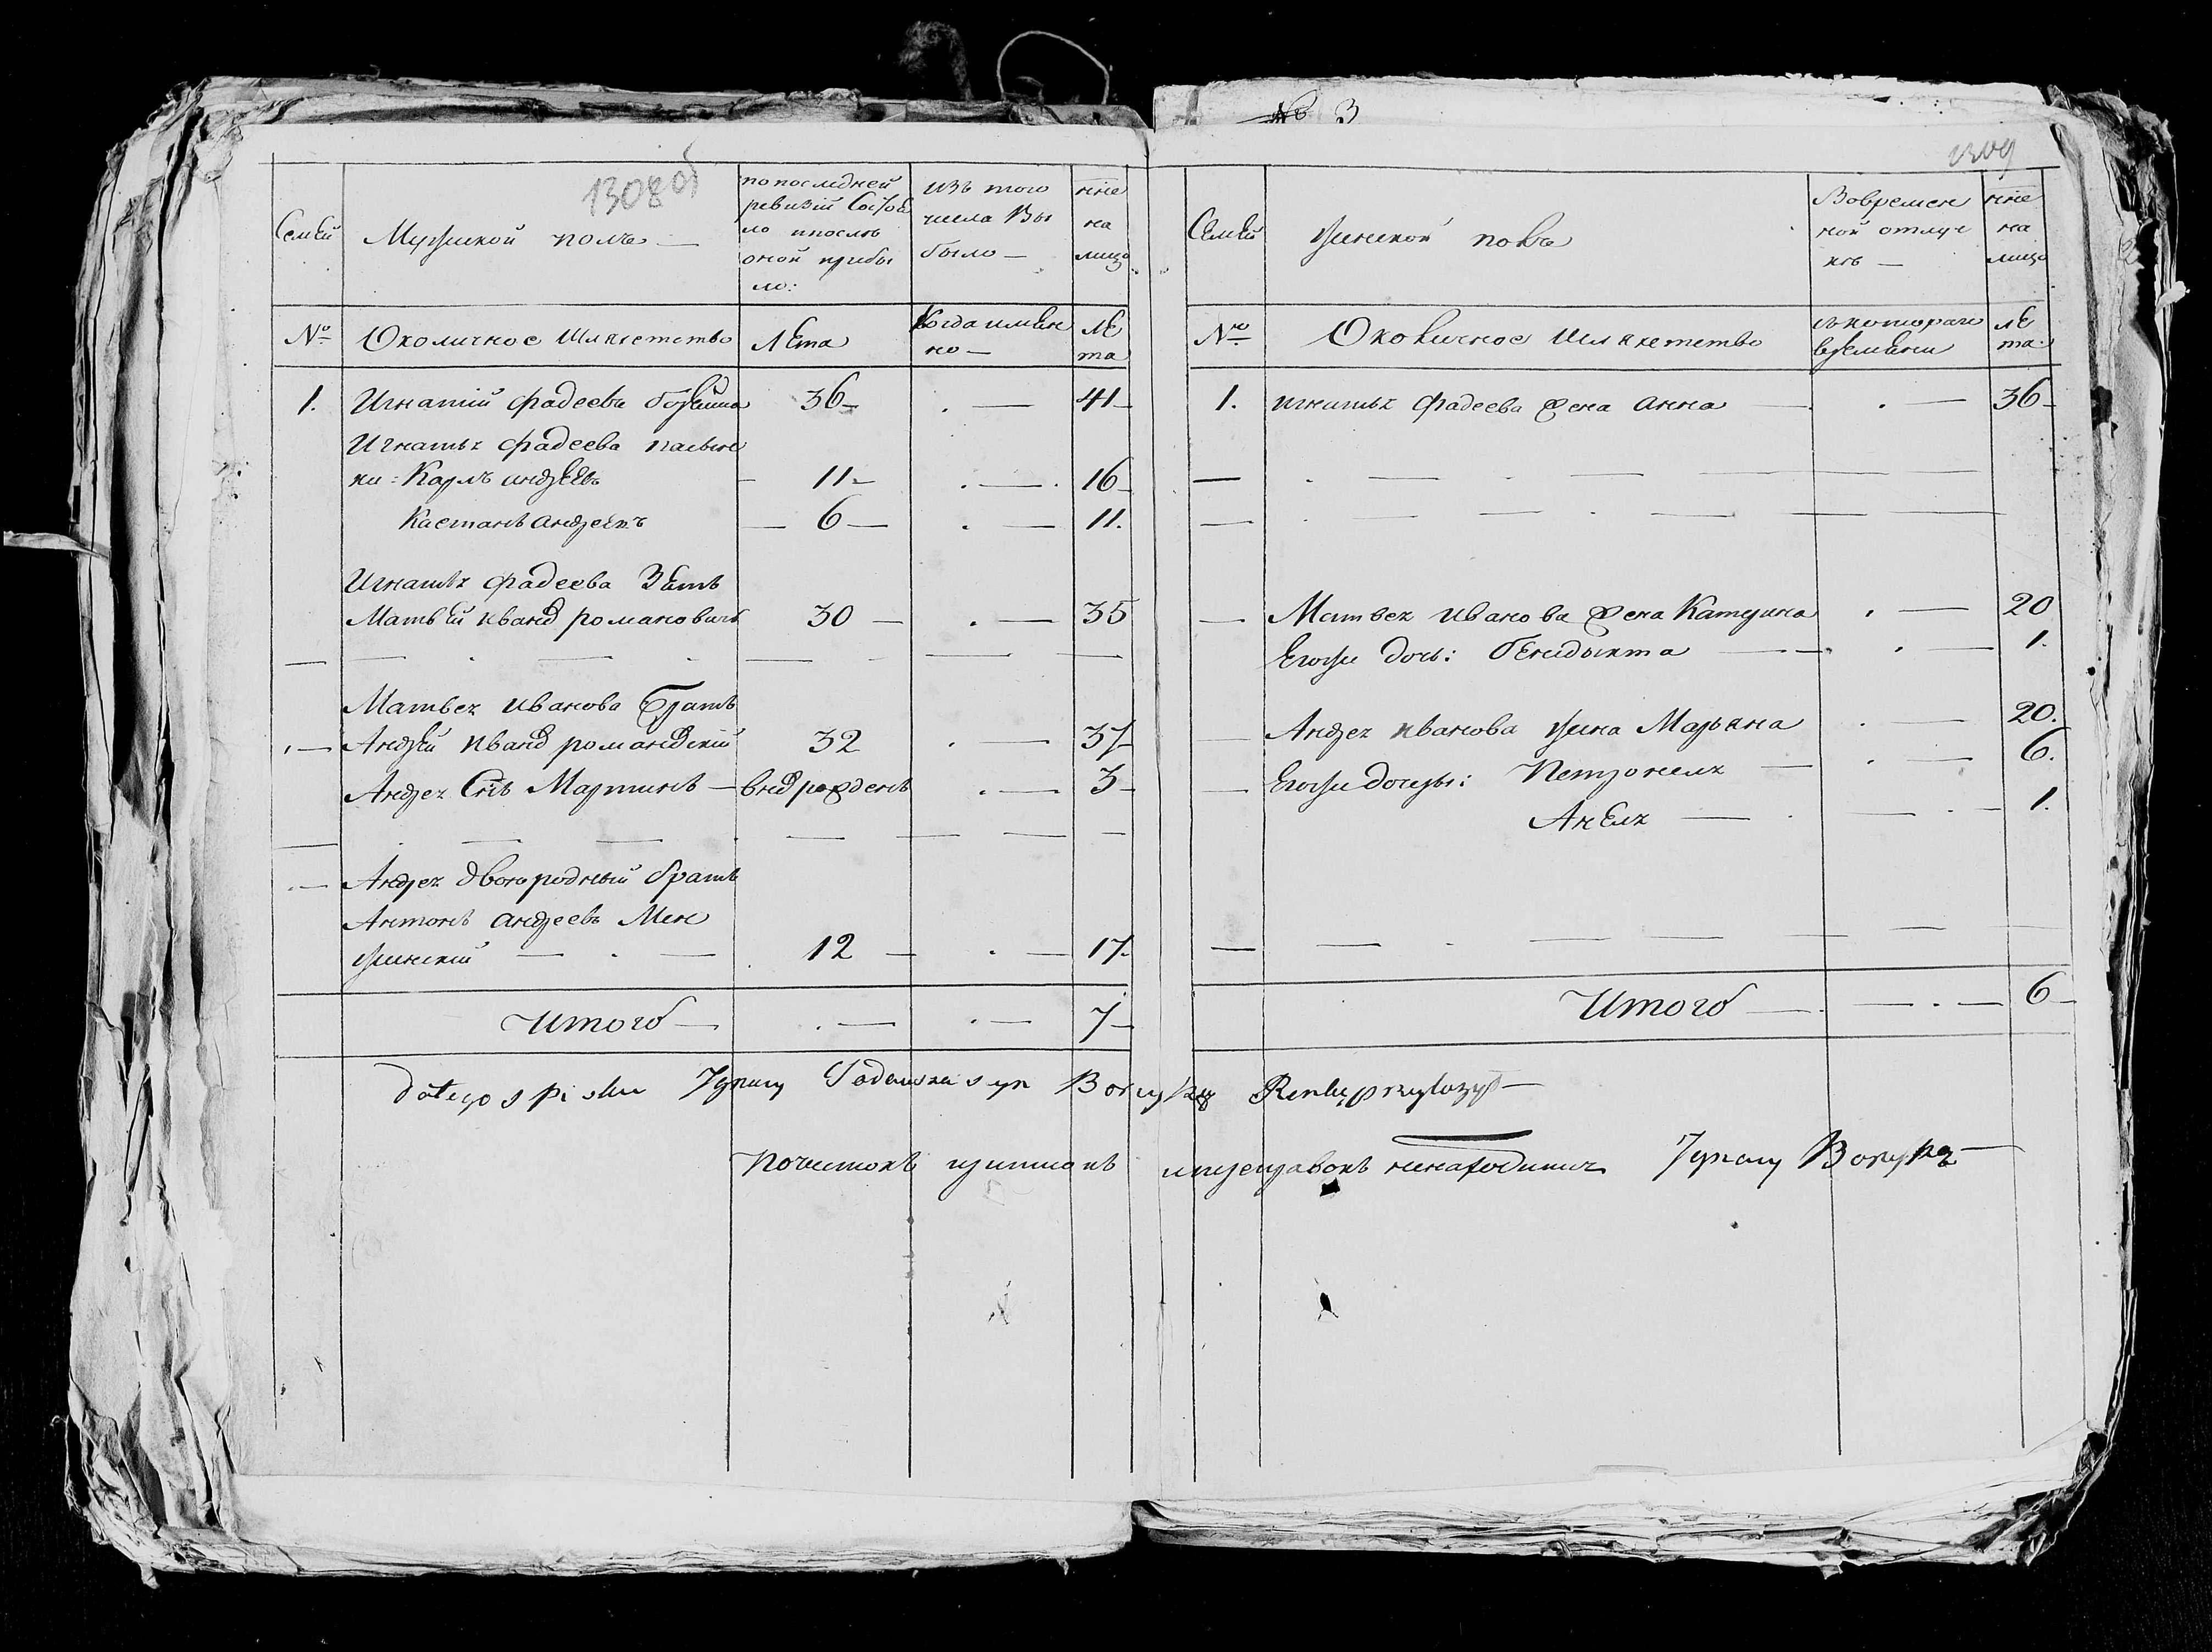 № 3
1308об
1309
Семьи
Мужской полъ —
по последней
ревизіи Состоя
ло ипосле
оной прибы
ло:
изъ того
числа Вы
было —
нне
на
лицо
№
Околичное Шляхетство
Лета
Когда имян
но —
ле
та
1. Игнатій фадеевъ 36 — . — 41 —
Игнатья фадеева пасын
ки: Карлъ андреевъ — 11 — . — . 16 —
Каетанъ андреевъ — 6 — . — 11.
Игнатья фадеева Зять
Матвей иванов романовичъ 30 — . — 35
Матвея иванова братъ
Андрей иванов романовскій 32 . — 37 —
Андрея Снъ Мартинъ — внов рожденъ . — 3 —
Андрея двоюродный братъ
Антонъ андреевъ Мен
жинскій — . — 12 — . — 17.
Итого — . — . — 7 —
Семьи
женской полъ
Вовремен
ной отлуч
ке —
нне
на
лицо
№
Околичное Шляхетство
съ котораго
времени
ле
та
1. игнатья фадеева жена анна — . — 36 —
— Матвея иванова жена Катерина . — 20
Егоже дочь: бенидыкта — . — 1.
— Андрея иванова жена Марьяна . — 20.
— Егоже дочеры: Петронеля — . — 6.
Анеля — . — . — 1.
Итого — . — . — 6 —
do tego spisku Ignacy Tadeusza syn Renkę przylozył —
почисток приписок ипереправок ненаходитца Ignacy